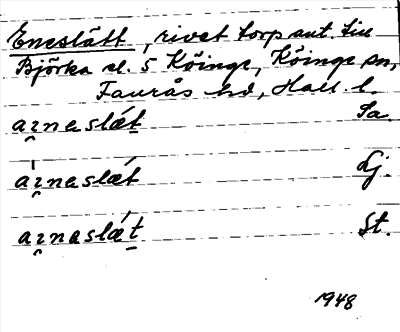 Eneslätt, rivet torp ant. till
Björka el. 5 Köinge, Köinge sn,
Faurås hd, Hall. l.
aɪnaslǽt Sa.
aɪnaslæt Lj.
aɪnaslǽt St.
1948